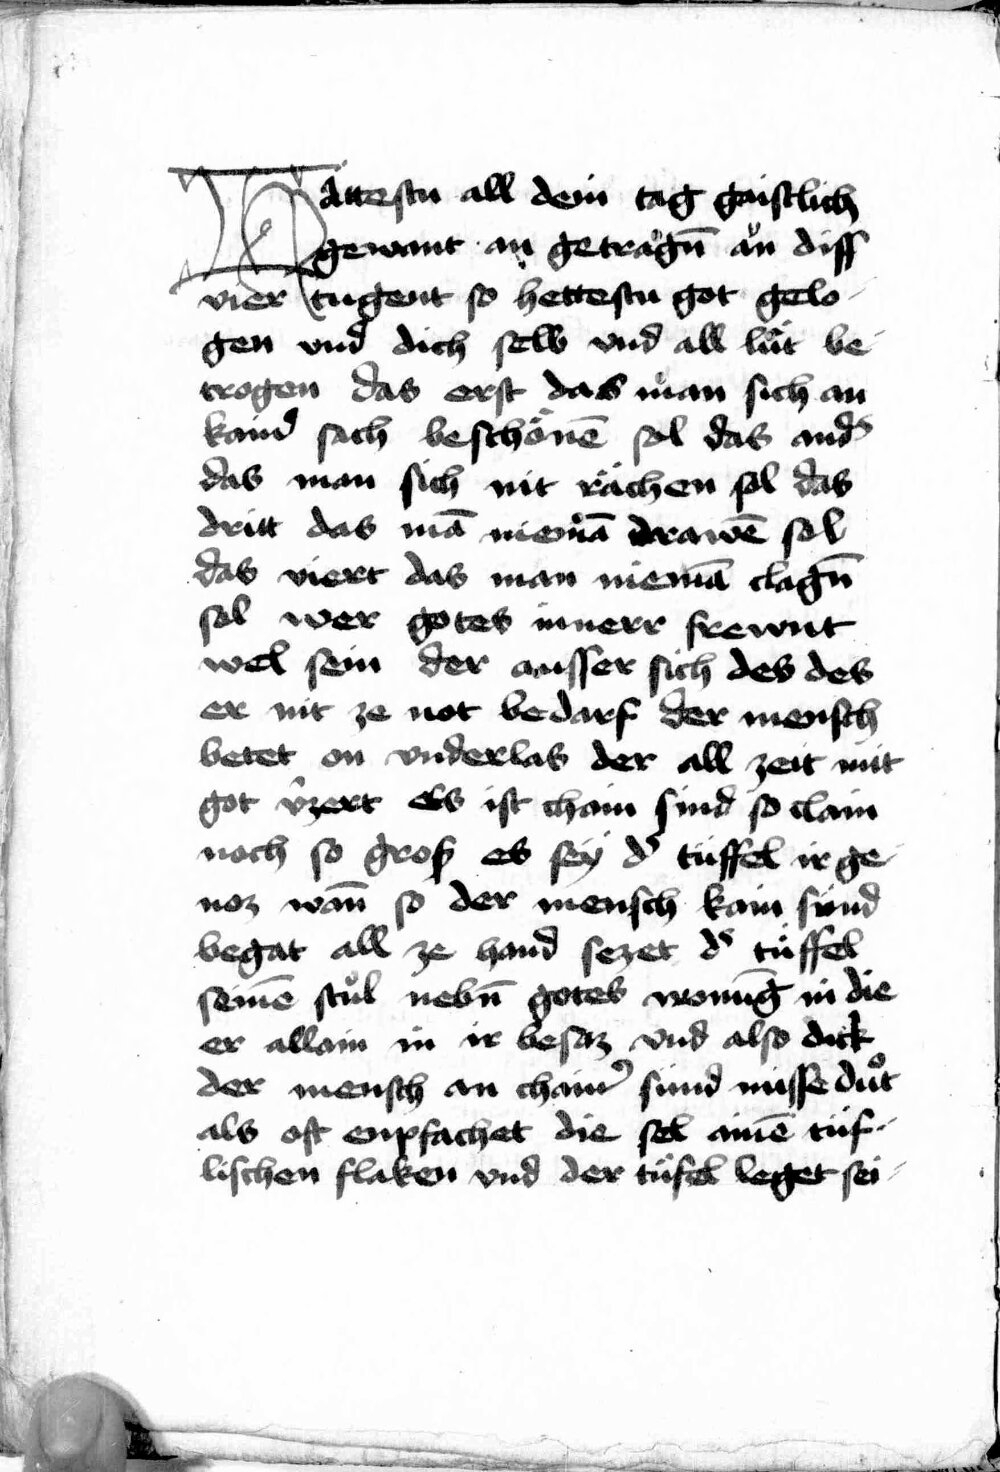 Hattestu all dein tag gaistlich
gewant an getragn̄ an diss
vier tugent so hettestu got gelo-
gen vnd dich selb vnd all lüt be-
trogen das erst das man sich an
kainͥ sach beschönē sol das and᾽
das man sich nit rächen sol das
dritt das mā niemā drawē sol
das viert das man niemā clagn̄
sol wer gotes innerr frewnt
wel sein der ausser sich des des
er nit ze not bedarf der mensch
betet on vnderlas der all zeit mit
got v̂zert es ist chain sind so clain
noch so groß es sey d᾽ tüffel ir ge-
noz wan̄ so der mensch kain sünd
begat all ze hand sezet d᾽ tüffel
seinē stůl nebn̄ gotes wonūg in die
er allain in ir besaz vnd also dick
der mensch an chain᾽ sünd misse důt
als oft enpfachet die sel ainē tüf-
lischen flaken vnd der tüfel leget sei-